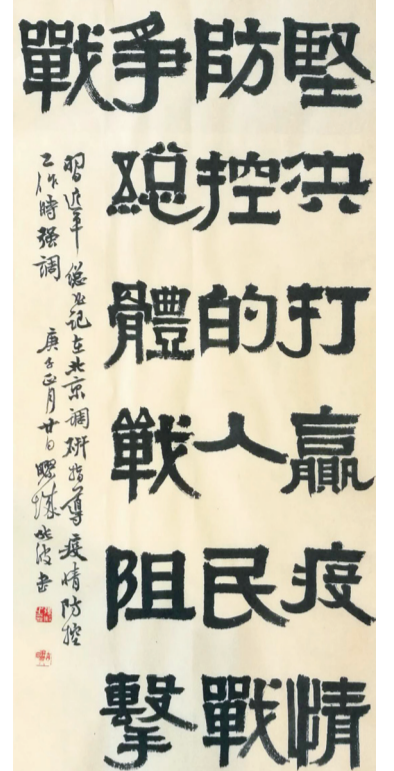 堅決打贏疫情
防控的人民戰
爭總體戰阻擊
戰
習近平總書記在北京調研指導疫情防控
工作時强調 庚子正月廿日 書